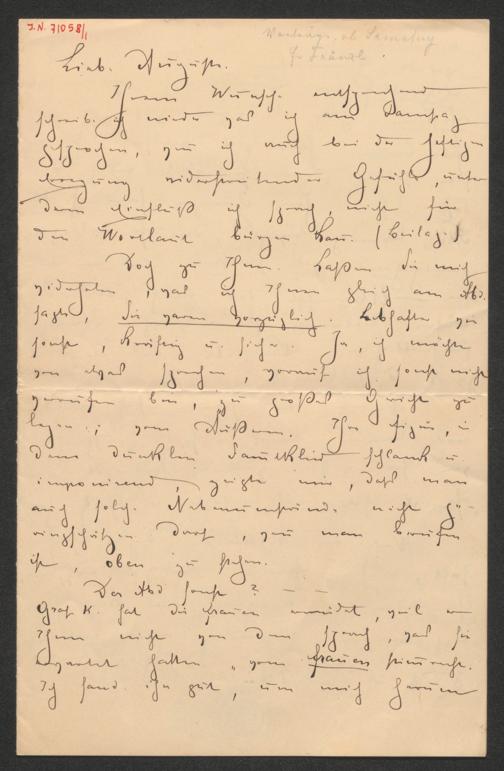 J.N. 71058/1
Vortrags. ab Samstag
f. Fränzl.
Lieb. August.
Ihrem Wunsch entsprechend
schreib. ich nieder was ich am Samstag
gesprochen, wenn ich auch bei der heftigen
Erregung widerstreitender Gefühle, unter
dem Einfluß ich sprach, nicht für
den Wortlaut bürgen kann. (Beilag.)
Doch zu Ihnen. Laßen Sie mich
widerholen, was ich Ihnen gleich am Abd.
sagte, Sie waren vorzüglich. Lebhafter wie
sonst, kräftig u. sicher. Ja, ich möchte
von etwas sprechen, worauf ich sonst nicht
gewohnt bin, zu großes Gewicht zu
legen; vom Äußern. Ihre Figur, in
dem dunklen Samtkleid schlank u.
imponirend, zeigte mir, daß man
auch solch. Nebenumstände nicht ge-
ringschätzen darf, wenn man berufen
ist, oben zu stehen.
Der Abd sonst? – –
Graf K. hat die Frauen, weil er
Ihnen nicht von dem sprach, was sie
erwartet hatten, „vom Frauenstimmrecht.
Ich fand ihn gut, um mich herum